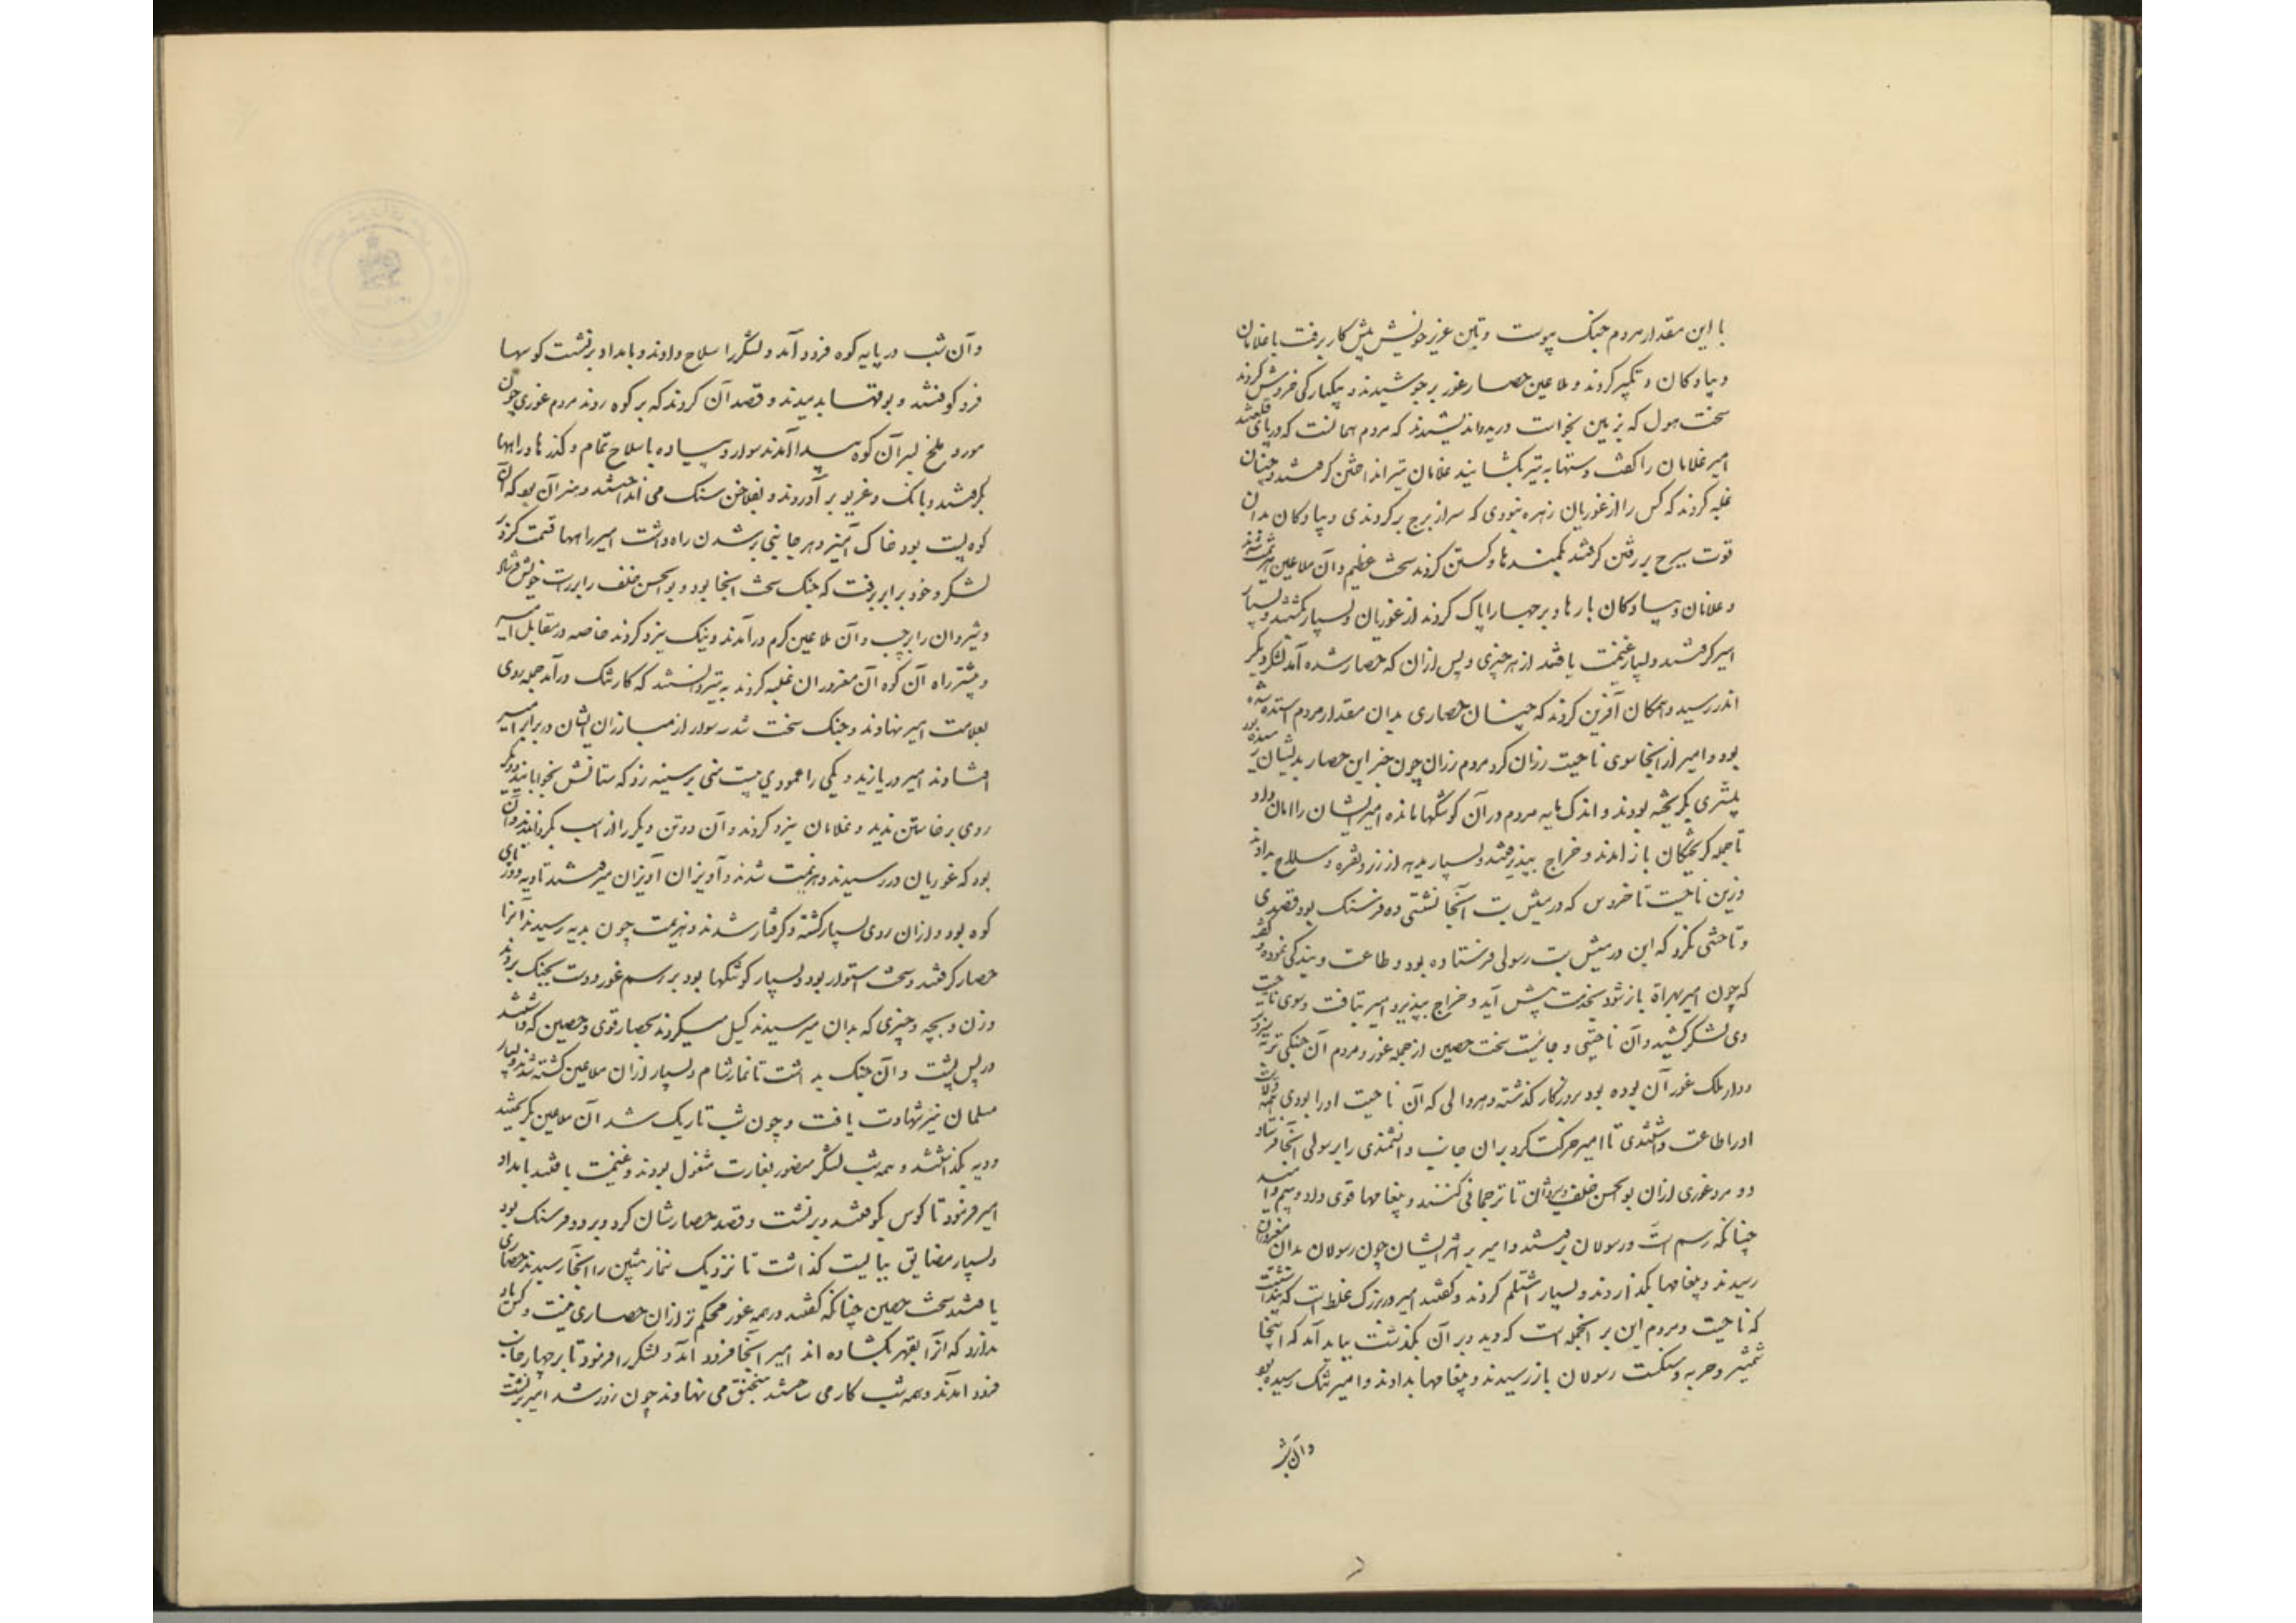 با این مقدار مردم جنک پیوست و بتن عزیز خویش پیش کار برفت با غلامان
و پیادکان و تکبیر کردند و ملاعین حصار غور برجوشیدند و بیکبارکی خروش کردند
سخت هول که زمین بخواست دریدن اندیشیدند که مردم همانست که در پای قلعتند
امیر غلامان را کفت دستها به تیر بکشایند غلامان تیر انداختن کرفتند و چنان
غلبه کردند که کس را از غوریان زهره نبودی که سر از برج برکردندی و پیادکان بدان
قوت ببرج بر رفتن کرفتند بکمندها و کشتن کردند سخت عظیم و آن ملاعین هزیمت شدند
و غلامان و پیادکان بارها و برجها را پاک کردند از غوریان و بسیار بکشتند و بسیار
اسیر کرفتند و بسیار غنیمت یافتند از هر چیزی و پس ازان که حصار ستده آمد لشکر دیکر
اندر رسید و همکان آفرین کردند که چنان حصاری بدان مقدار مردم ستده شده
بود و امیر از آنجا سوی ناحیت رزان کرد مردم رزان چون خبر این حصار بدیشان رسیده بود
بیشتری بکریخته بودند و اندک مایه مردم در آن کوشکها مانده امیر ایشان را امان داد
تا جمله کریختکان باز آمدند و خراج بپذیرفتند و بسیار هدیه از زر و نقره و سلاح بدادند
وزین ناحیت تا خروس که درمیش بت آنجا نشستی ده فرسنک بود قصدی
و تاختنی نکرد که این درمیش بت رسولی فرستاده بود و طاعت و بندکی نموده و کفته
که چون امیر بهراة باز شود بخدمت پیش آید و خراج بپذیرد امیر بتافت و سوی ناحیت
وی لشکر کشید و آن ناحیتی و جائیست سخت حصین از جمله غور و مردم آن جنکی تر و بنیرو تر
و دار ملک غور آن بوده بود بروزکار کذشته و هر والی که آن ناحیت او را بودی همه ولایت
او را طاعت داشتندی تا امیر حرکت کرد بران جانب دانشمندی را برسولی آنجا فرستاد
دو مرد غوری ازان بوالحسن خلف و شیروان تا ترجمانی کنند و پیغامها قوی داد و بیم و امید
چنانکه رسم است و رسولان برفتند و امیر بر اثر ایشان چون رسولان بدان مغروران
رسیدند و پیغامها بکذاردند و بسیار اشتلم کردند و کفتند امیر در بزرک غلط است که پنداشته است
که ناحیت و مردم این بر آنجمله است که دید و بر آن بکذشت بباید آمد که اینجا
شمشیر و حربه و سنکست رسولان باز رسیدند و پیغامها بدادند و امیر تنک رسیده بود
وآن شب
وآن شب در پایه کوه فرود آمد و لشکر را سلاح دادند و بامداد برنشست کوسها
فرو کوفتند و بوقها بدمیدند و قصد آن کردند که بر کوه روند مردم غوری چون
مور و ملخ بسر آن کوه پیدا آمدند سوار و پیاده با سلاح تمام و کذرها و راهها
بکرفتند و بانک و غریو بر آوردند و بفلاخن سنک می انداختند و هنر آن بود که آن
کوه پست بود خاک آمیز و هر جانبی بر شدن راه داشت امیر راهها قسمت کرد بر
لشکر و خود برابر برفت که جنک سخت آنجا بود و بوالحسن خلف را بر راست خویش فرستاد
و شیروان را بر چپ و آن ملاعین کرم درآمدند و نیک نیرو کردند خاصه در مقابل امیر
و بیشتر راه آن کوه آن مغروران غلبه کردند به تیر و دانستند که کار تنک درآمد جمله روی
بعلامت امیر نهادند و جنک سخت شد سه سوار از مبارزان ایشان در برابر امیر
افتادند امیر دریازید و یکی را عمودی بیست منی بر سینه زد که ستانش بخوابانید و دیکر
روی برخاستن ندید و غلامان نیرو کردند و آن دو تن دیکر را از اسب بکردانیدند و آن
بود که غوریان در رسیدند و هزیمت شدند و آویزان آویزان میرفتند تا دیه در پای
کوه بود و ازان روی بسیار کشته و کرفتار شدند و هزیمت چون بدیه رسیدند آنرا
حصار کرفتند و سخت استوار بود و بسیار کوشکها بود بر رسم غور و دست بجنک بردند
و زن و بچه و چیزی که بدان میرسیدند کسیل میکردند بحصار قوی و حصین که داشتند
در پس پشت و آن جنک بداشت تا نماز شام و بسیار ازان ملاعین کشته شدند و بسیار
مسلمان نیز شهادت یافت و چون شب تاریک شد آن ملاعین بکریختند
و دیه بکذاشتند و همه شب لشکر منصور بغارت مشغول بودند و غنیمت یافتند بامداد
امیر فرمود تا کوس بکوفتند و برنشست و قصد حصارشان کرد و بر دو فرسنک بود
و بسیار مضایق ببایست کذاشت تا نزدیک نماز پیشین را آنجا رسیدند حصاری
یافتند سخت حصین چنانکه کفتند در همه غور محکم تر ازان حصاری نیست و کس یاد
ندارد که آنرا بقهر بکشاده اند امیر آنجا فرود آمد و لشکر را فرمود تا بر چهار جانب
فرود آمدند و همه شب کار می ساختند منجنیق می نهادند چون روز شد امیر برنشست